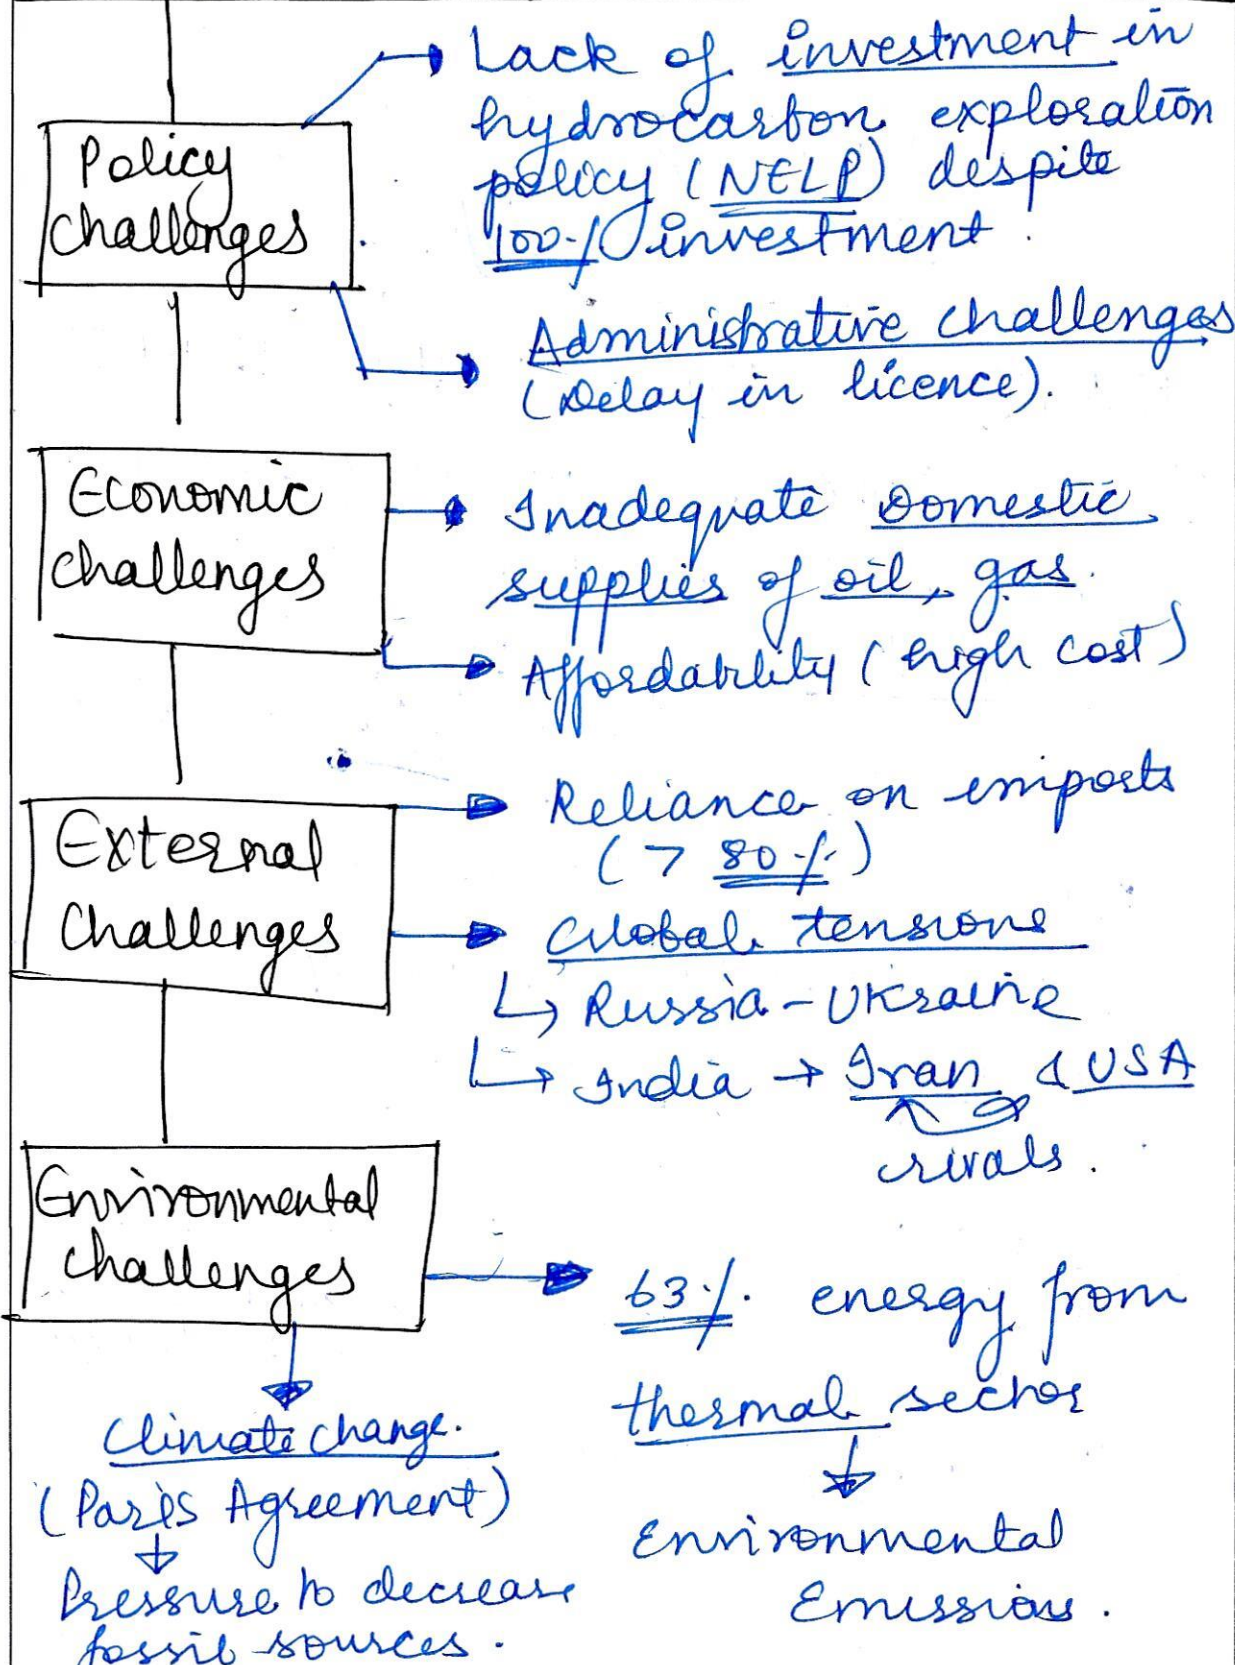 Policy
challenges
Lack of investment in
hydrocarbon exploration
policy (NELP) despite
100% investment.
Administrative challenges
(Delay in licence).
Economic
challenges
Inadequate Domestic
supplies of oil, gas.
Affordability (high cost)
External
Challenges
Reliance on imports
(> 80%)
Global tensions
↳ Russia - Ukraine
↳ India → Iran & USA
rivals.
Environmental
challenges
63%. energy from
thermal sector
↓
Environmental
Emissions.
Climate change.
(Paris Agreement)
↓
Pressure to decrease
fossil sources.